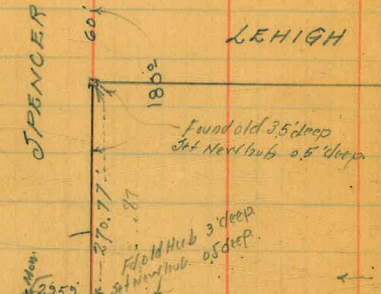 SPENCER
60'
LEHIGH
180°
Found old 3.5' deep
Set New hub 0.5' deep.
270.77'
.87
Fd old Hub 3' deep
Set New hub 0.5 deep.
Mon.
2959